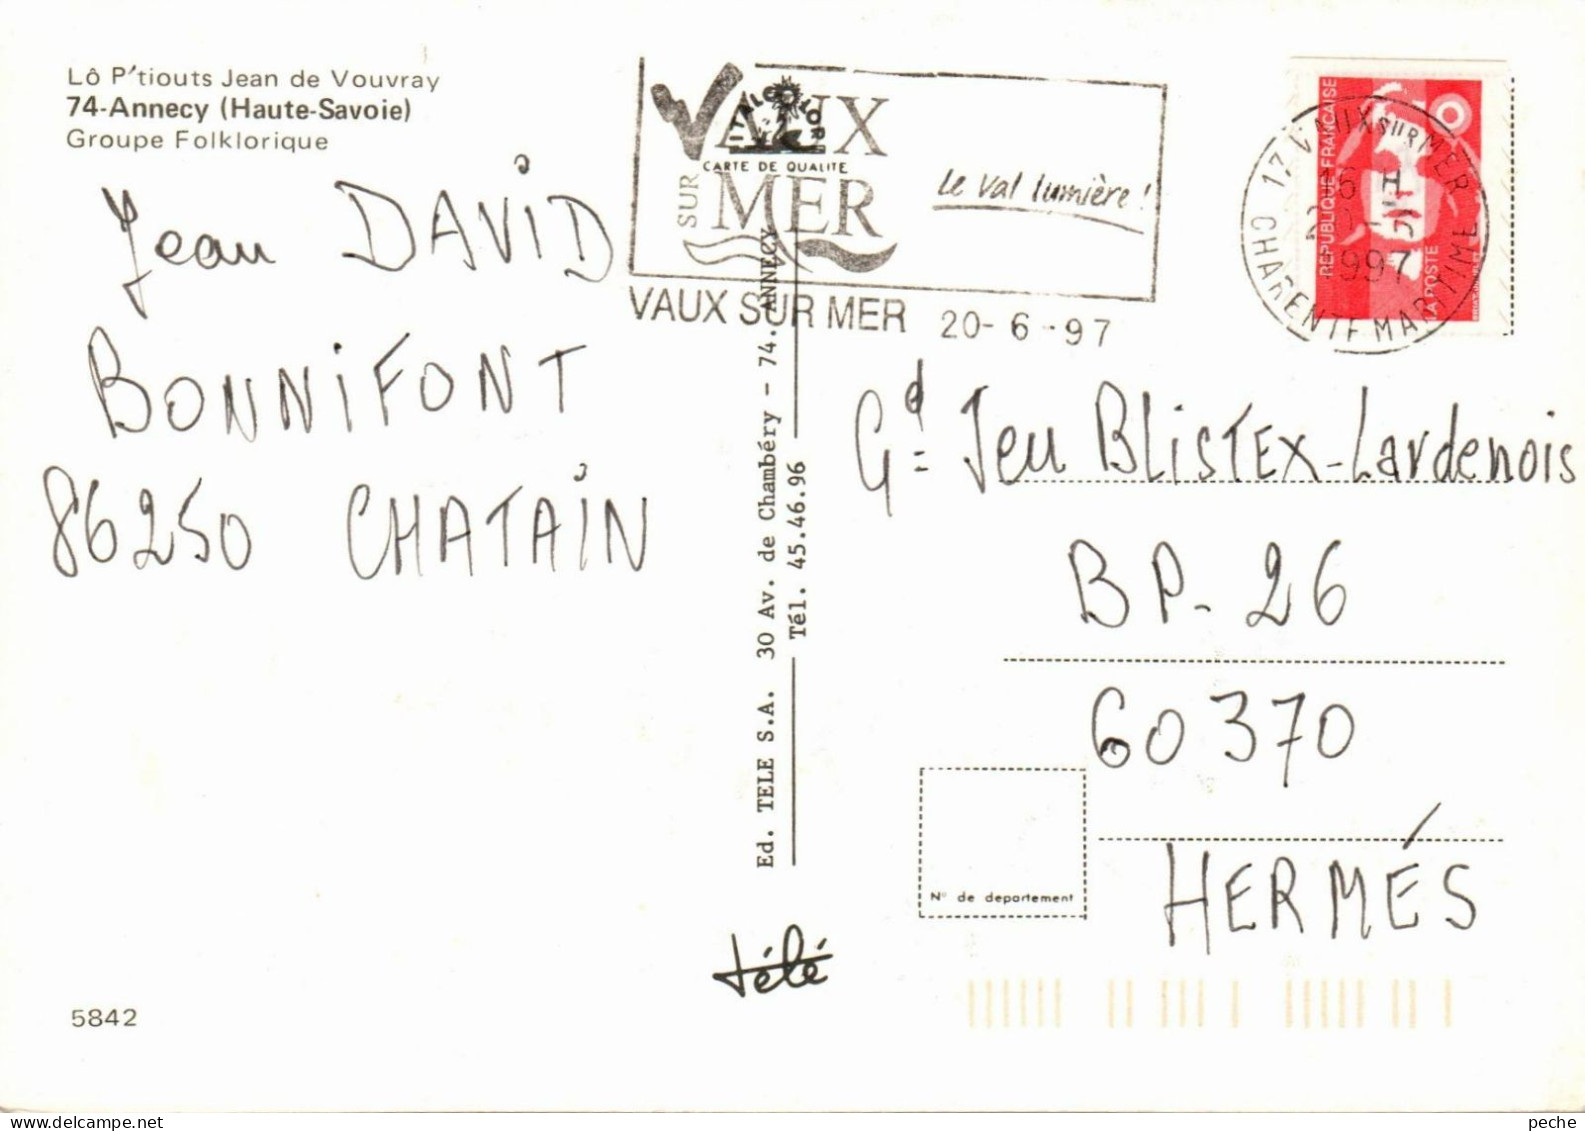 Lô P'tiouts Jean de Vouvray
74-Annecy (Haute-Savoie)
Groupe Folklorique
Jean DAVID
BONNIFONT
86250 CHATAIN
5842
VAUX
SUR
MER
ITALCOLOR
CARTE DE QUALITE
Le Val lumière !
VAUX SUR MER 20-6-97
17 VAUX SUR MER
16 H
1997
CHARENTE MARITIME
REPUBLIQUE FRANÇAISE
LA POSTE
Ed. TELE S.A. 30 Av. de Chambéry - 74. ANNECY
Tél. 45.46.96
télé
Gd Jeu BLISTEX-Lardenois
BP-26
60370
HERMÉS
N° de departement
peche